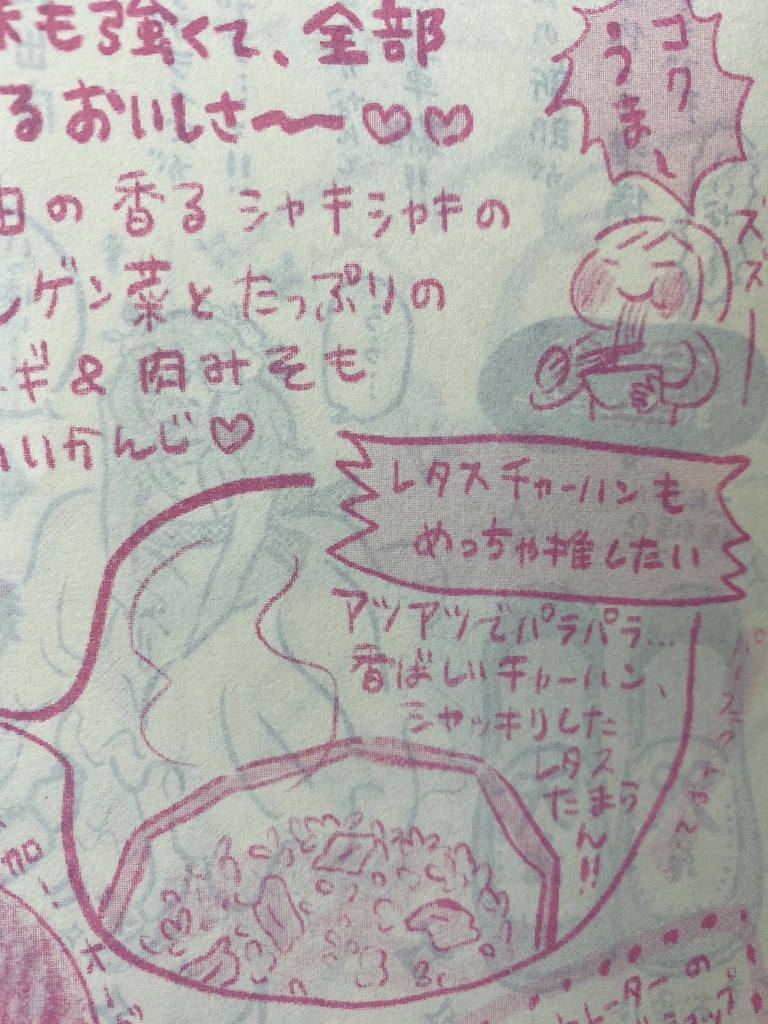 も強くて、全部
るおいしさ〜♡♡
コク
うまっ
の香るシャキシャキの
ゲン菜とたっぷりの
ギ&肉みそも
いいかんじ♡
ズズー
レタスチャーハンも
めっちゃ推したい
アツアツでパラパラ…
香ばしいチャーハン、
シャッキリした
レタス
たまら
ん!!